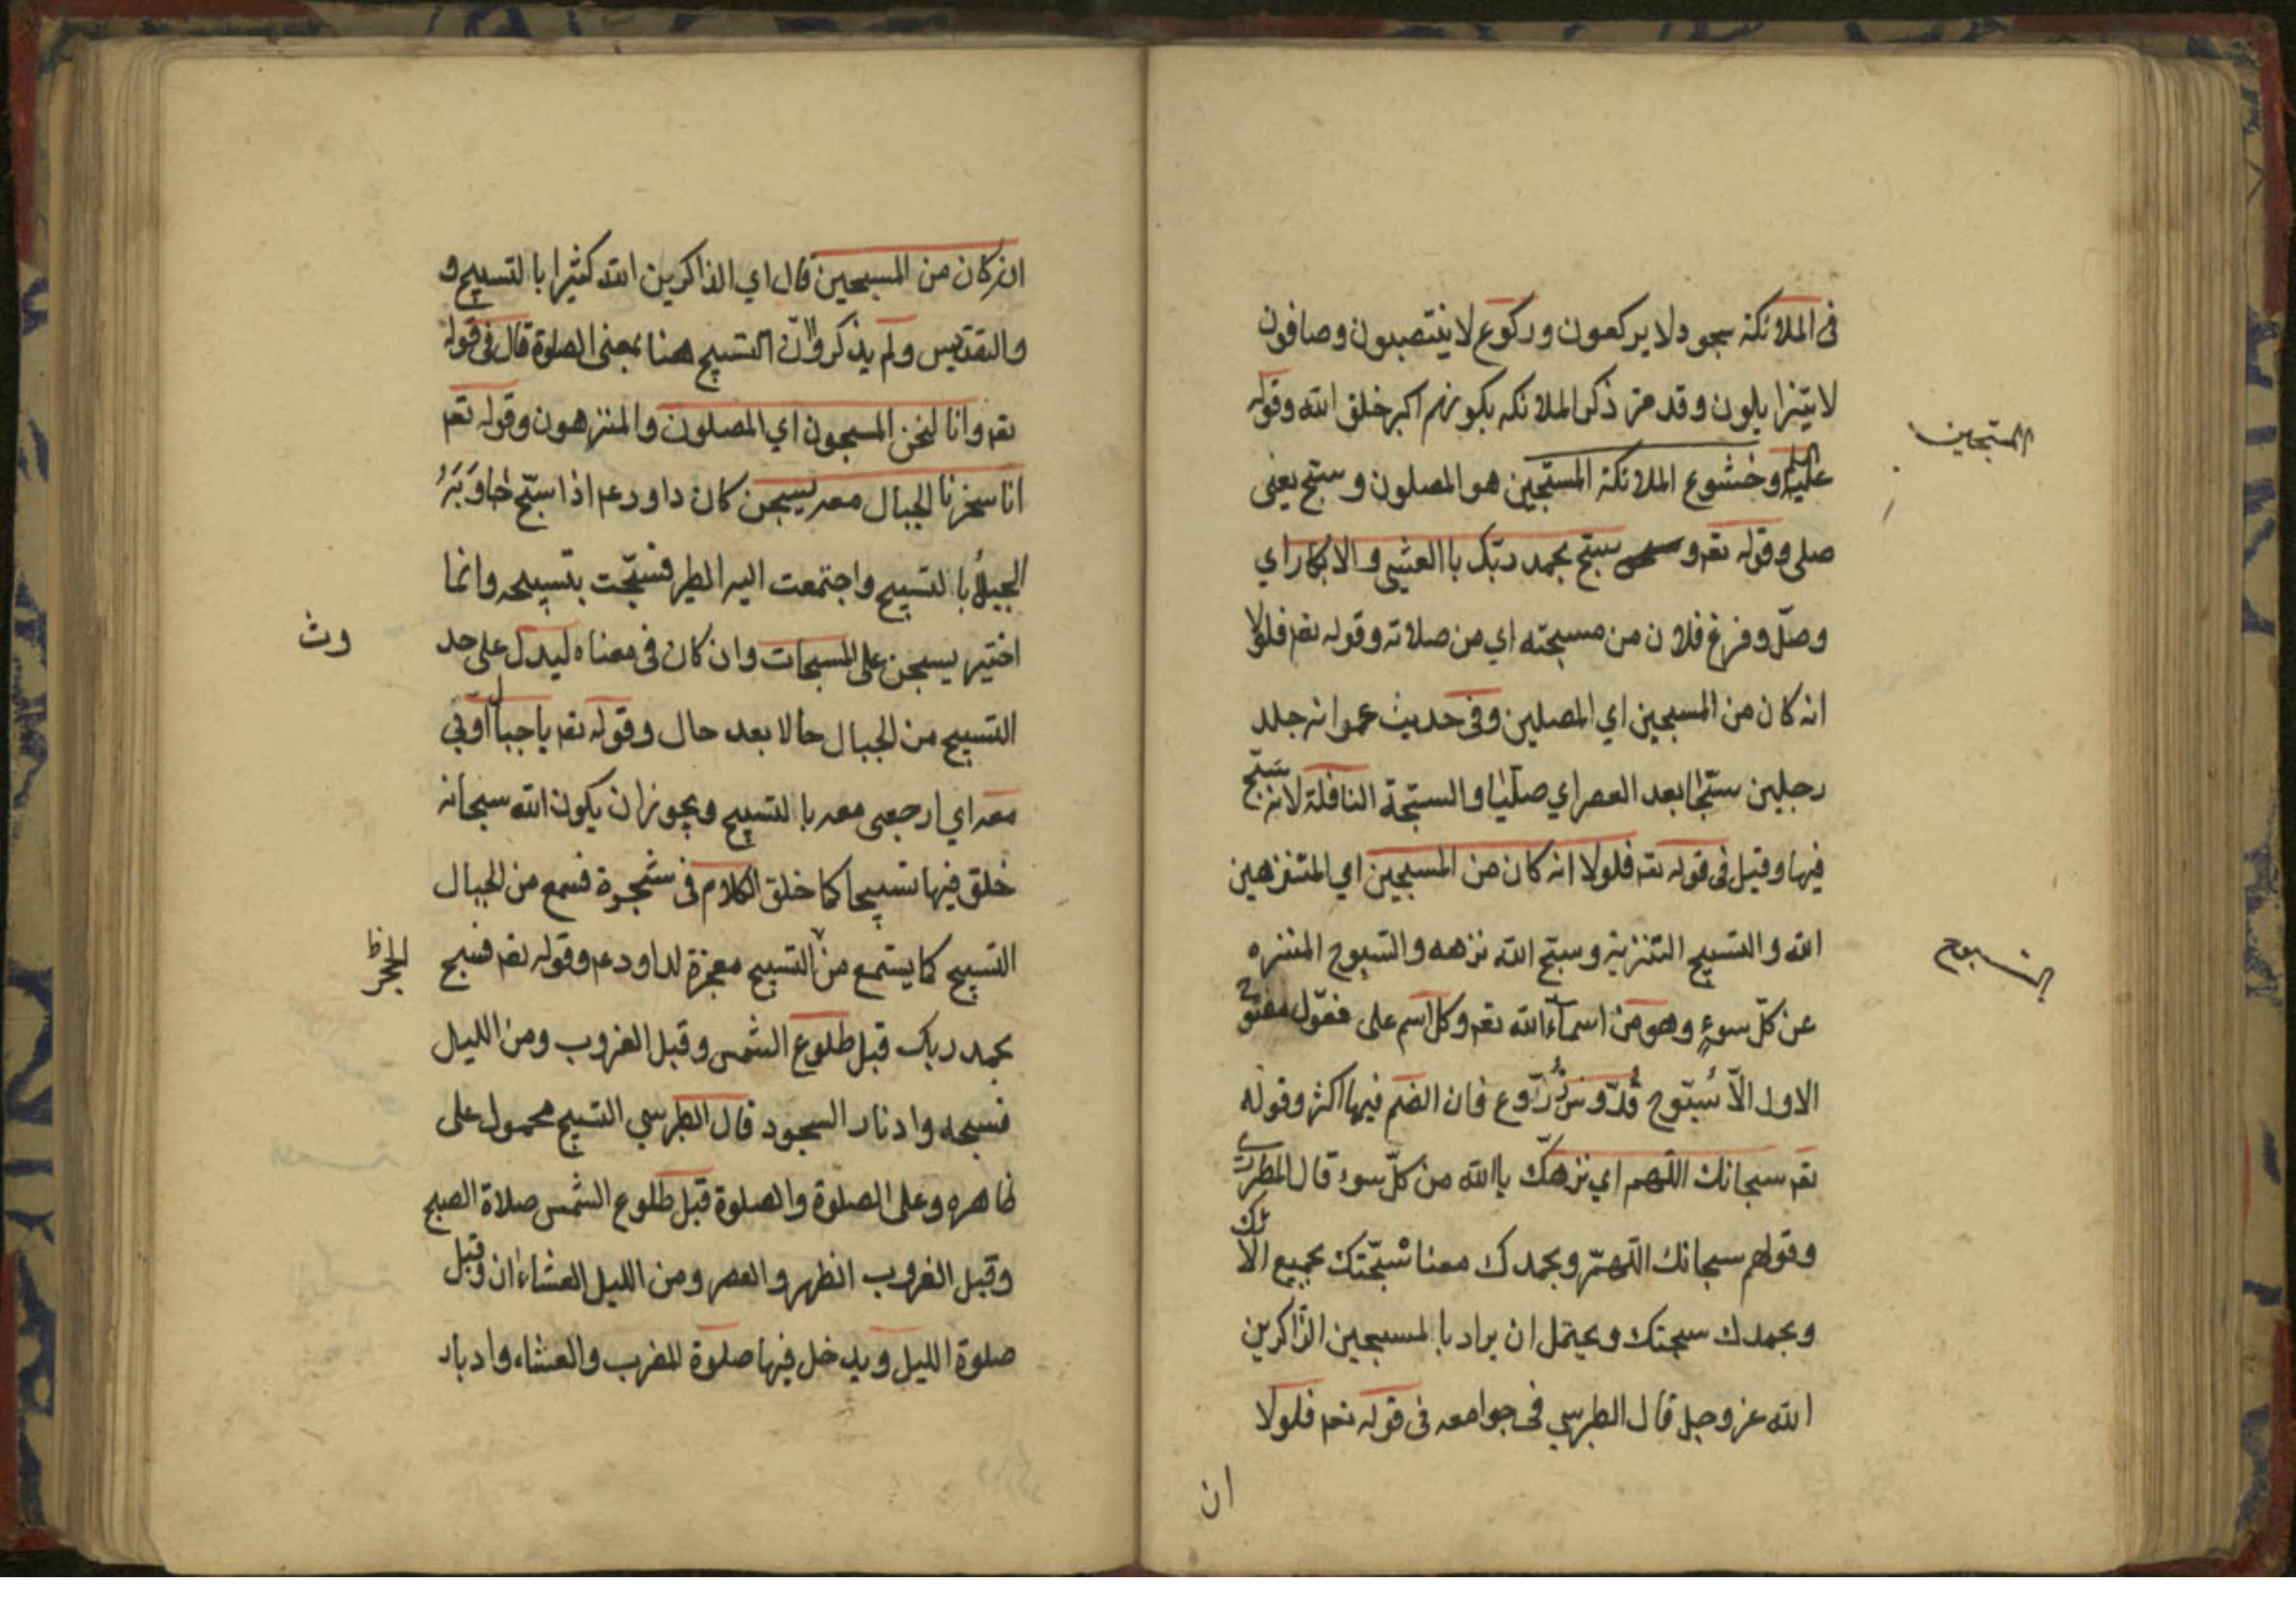 فى الملائكة سجود لا يركعون وركوع لا ينتصبون وصافون
لا يتزايلون وقد مر ذكر الملائكه بكونهم اكبر خلق الله وقوله
المسبحين
عليه وخشوع الملائكة المسبّحين هو المصلون وسبّح يعنى
صلى وقوله تعم و سبّح بحمد ربّك باالعشي والابكار اي
وصلّ وفرغ فلان من مسبحته اي من صلاته وقوله تعم فلولا
انه كان من المسبحين اي المصلين وفى حديث عمر انه جلد
رجلين سبّحا بعد العصر اي صلّيا والسبّحة النافلة لانه يسَبّح
فيها وقيل فى قوله تعم فلولا انه كان من المسبحين اي المتنزهين
الله والتسبيح التنزيه وسبّح الله نزهه والسّبوح المتنزه
السبوح
عن كلّ سوءٍ وهو من اسماء الله تعم وكل اسم على فعّول مفتوح
الاول الّا سُبّوح قُدّوس ذُرّوح فان الضم فيها اكثر وقوله
تعم سبحانك اللّهم اي نزهك ياالله من كلّ سوء قال المطرزي
وقولهم سبحانك اللّهمّ وبحمدك معناه سبّحتك بجميع آلائك
وبحمدك سبحتك ويحتمل ان يراد باالمسبحين الذّاكرين
الله عز وجل قال الطبرسي فى جوامعه فى قوله تعم فلولا
ان
انه كان من المسبحين قال اي الذاكرين الله كثيرا باالتسبيح و
والتقديس ولم يذكروا انّ التسبيح هنا بمعنى الصلوة قال فى قوله
تعم وانا لنحن المسبحون اي المصلون والمنزهون وقوله تعم
انا سخرنا الجبال معه يسبحن كان داود عم اذا سبّح جاوَبَهُ
الجبلُ باالتسبيح واجتمعت اليه الطير فسبّحت بتسبيحه وانما
اختير يسبحن على المسبحات وان كان فى معناه ليدل على حد
وث
التسبيح من الجبال حالا بعد حال وقوله تعم ياجبال اوّبي
معه اي ارجعى معه باالتسبيح ويجوز ان يكون الله سبحانه
خلق فيها تسبيحا كما خلق الكلام فى شجرة فسمع من الجبال
التسبيح كما يستمع من التسبيح معجزة لداود عم وقوله تعم فسبح
الحجر ظ
بحمد ربك قبل طلوع الشمس وقبل الغروب ومن الليل
فسبحه وادبار السجود قال الطبرسي التسبيح محمول على
ظاهره وعلى الصلوة والصلوة قبل طلوع الشمس صلاة الصبح
وقبل الغروب الظهر والعصر ومن الليل العشاءان وقيل
صلوة الليل ويدخل فيها صلوة المغرب والعشاء وادبار